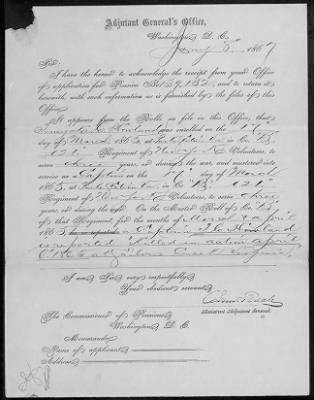 Adjutant General's Office,
Washington, D. C.,
1867
Sir:
I have the honor to acknowledge the receipt from your Office
of application for Pension No. 139,132, and to return it
herewith, with such information as is furnished by the files of this
Office.
It appears from the Rolls on file in this Office, that
was enrolled on the 17th
day of March, 1865, at in Co. B,
121st Regiment of New York Volunteers, to
serve three years, or during the war, and mustered into
service as a Captain on the day of March
1865, at in Co. "B," 121st
Regiment of New York Volunteers, to serve three
years, or during the war. On the Muster Roll of Co. "B,"
of that Regiment, for the months of March & April
1865, he is reported Captain Howland
is reported killed in action April
6 1865 at Sailors Creek Virginia.
I am, Sir, very respectfully,
Your obedient servant,
Assistant Adjutant General.
The Commissioner of Pensions,
Washington, D. C.
Memoranda:
Name of applicant
Address